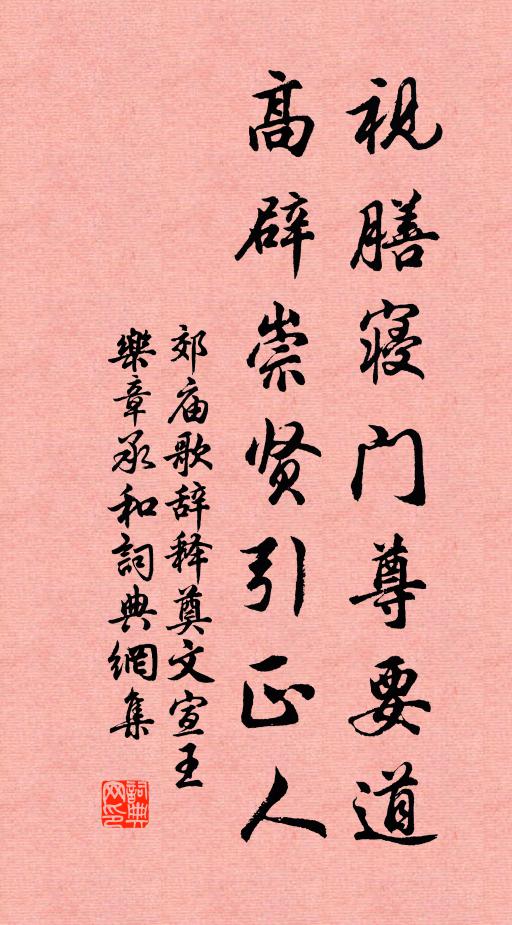 视膳寝门尊要道
高辟崇贤引正人
郊庙歌辞释奠文宣王
乐章承和詞典網集
詞典网印